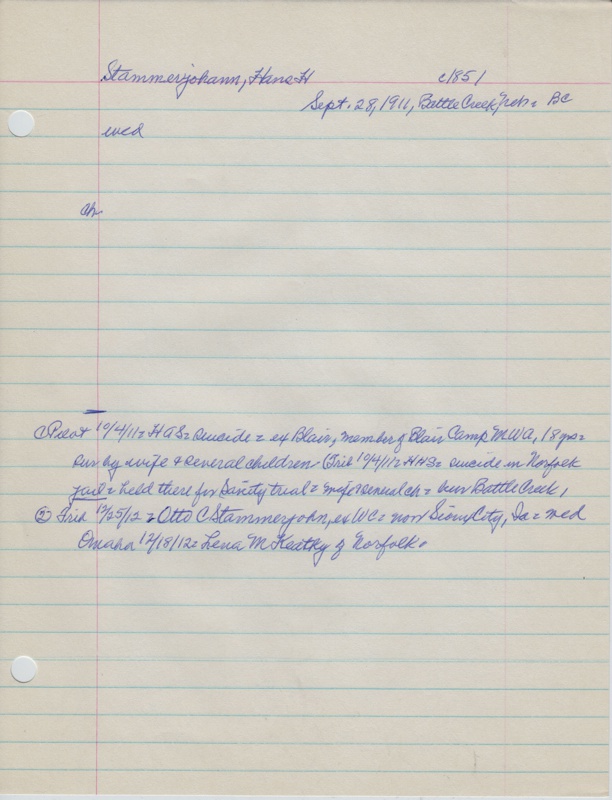 Stammerjohann, Hans H c1851
Sept. 28, 1911, Battle Creek, Neb = BC
wed
ch
10/4/11 = HAS = suicide = ex Blair, member of Blair Camp MWA, 18 yrs =
sur by wife & several children. Trib 10/4/11 = HHS = suicide in Norfolk
jail = held there for Sanity trial = several ch = bur Battle Creek,
② Trib 12/25/12 = Otto C Stammerjohn, ex WC = now Sioux City, Ia = med
Omaha 12/18/12 = Lena McKeathy of Norfolk.